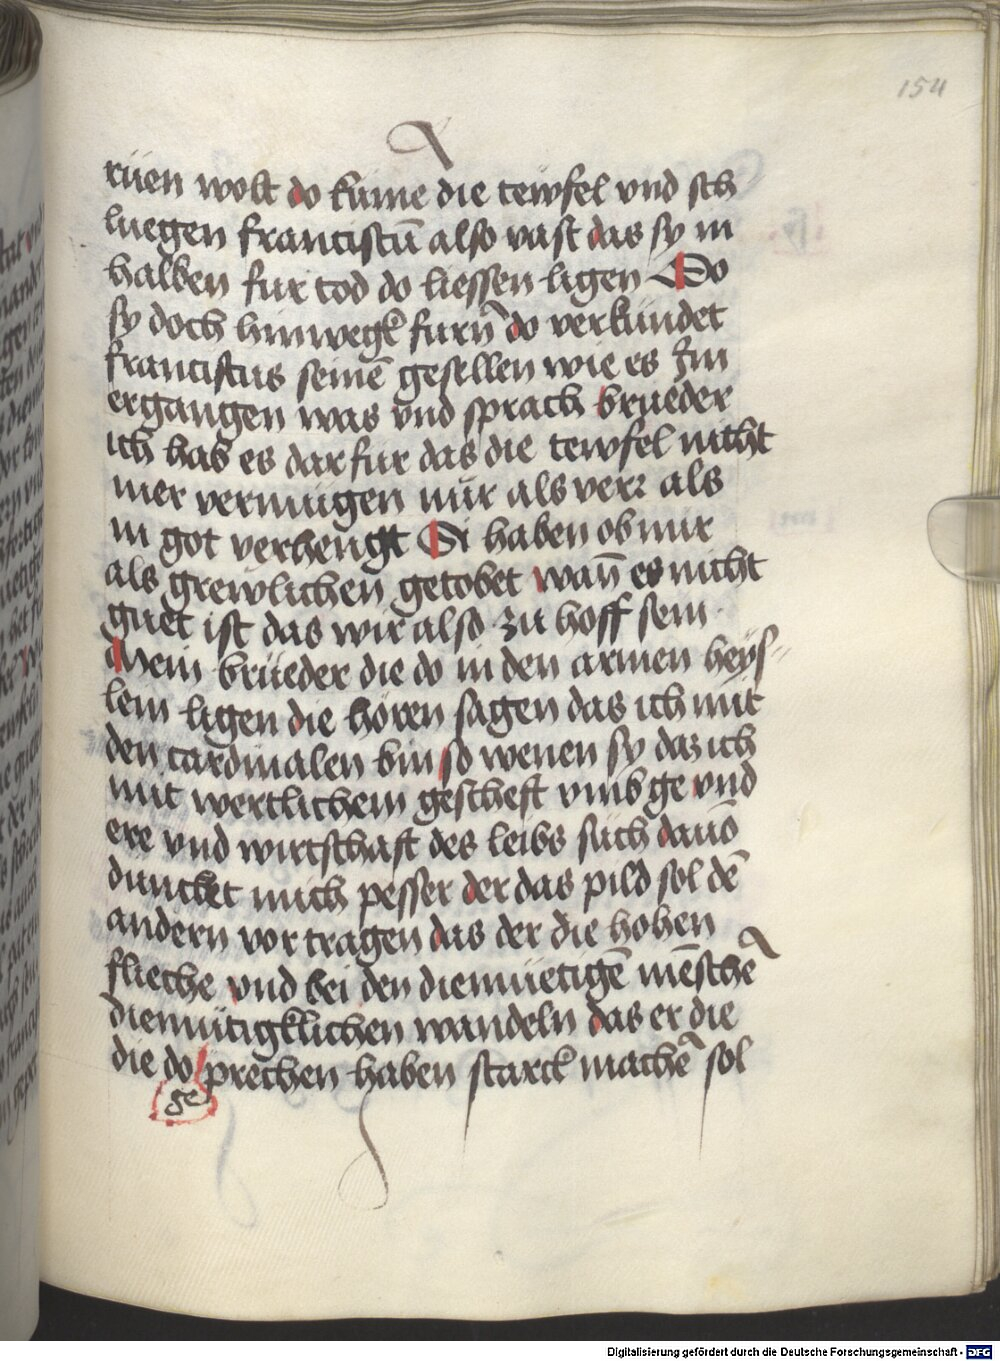 154
rüen wolt do kume die tewfel vnd sch
luegen francistū also vast das sy in
halben fur tod do liessen ligen Do
sy doch hinwegk furn̄ do verkündet
franciscus seinē gesellen wie es Im
ergangen was vnd sprach brueder
ich hab es dar fur das die tewfel nicht
mer vermügen nür als verr als
in got verhengt Si haben ob mir
als grewlichen getobet wañ es nicht
guet ist das wir also zu hoff sein
Mein brüeder die do in den armen heys=
lein ligen die hören sagen das ich mit
den cardinalen bin so wenen sy das ich
mit wertlichem gescheft vmb ge vnd
ere vnd wirtschaft des leibs such dauō
duncket mich pesser der das pild sol dē
andern vor tragen das der die hohen
flieche vnd bei den diemüetigē mēschē
diemütigklichen wandeln das er die
die do prechen haben starck machē sol
ge
Digitalisierung gefördert durch die Deutsche Forschungsgemeinschaft - DFG